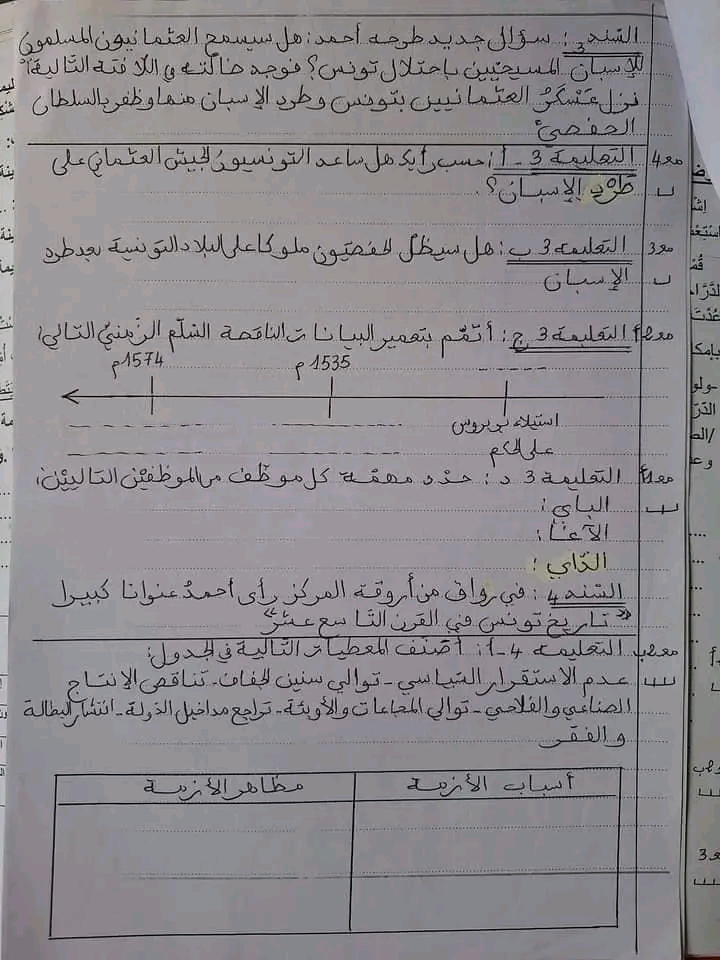 السّند 3: سؤال جديد طرحه أحمد: هل سيسمح العثمانيون المسلمون
للإسبان المسيحيّين باحتلال تونس؟ فوجد ضالّته في اللافتة التّالية:
نزل عَسْكَرُ العثمانيين بتونس وطرد الإسبان منها وظفر بالسلطان
الحفصيّ
مع4 التعليمة 3 - أ: حسب رأيك هل ساعد التونسيون الجيش العثماني على
طَرْدِ الإسبان؟
مع3 التعليمة 3 ب: هل سيظلّ الحفصيّون ملوكا على البلاد التونسية بعد طرد
الإسبان
مع2أ التعليمة 3 ج: أتمّم بتعمير البيانات الناقصة السّلّم الزّمنيّ التالي:
1535م 1574م
استيلاء بربروس
على الحكم
مع1أ التعليمة 3 د: حدّد مهمّة كل موظّف من الموظّفيْن التاليِيْن:
الباي:
الآغا:
الدّاي:
السّند 4: في رواق من أروقة المركز رأى أحمدُ عنوانا كبيرا
«تاريخ تونس في القرن التاسع عشر»
مع2ب التعليمة 4-أ: أصنّف المعطيات التّالية في الجدول:
عدم الاستقرار السّياسي - توالي سنين الجفاف - تناقص الإنتاج
الصناعي والفلاحي - توالي المجاعات والأوبئة - تراجع مداخيل الدولة - انتشار البطالة
والفقر
أسباب الأزمة مظاهر الأزمة